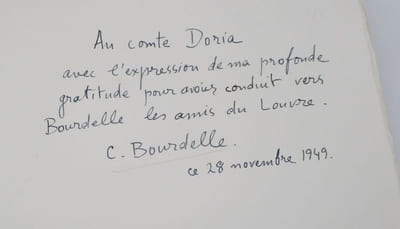 Au comte Doria
avec l'expression de ma profonde
gratitude pour avoir conduit vers
Bourdelle les amis du Louvre.
C. Bourdelle.
ce 28 novembre 1949.